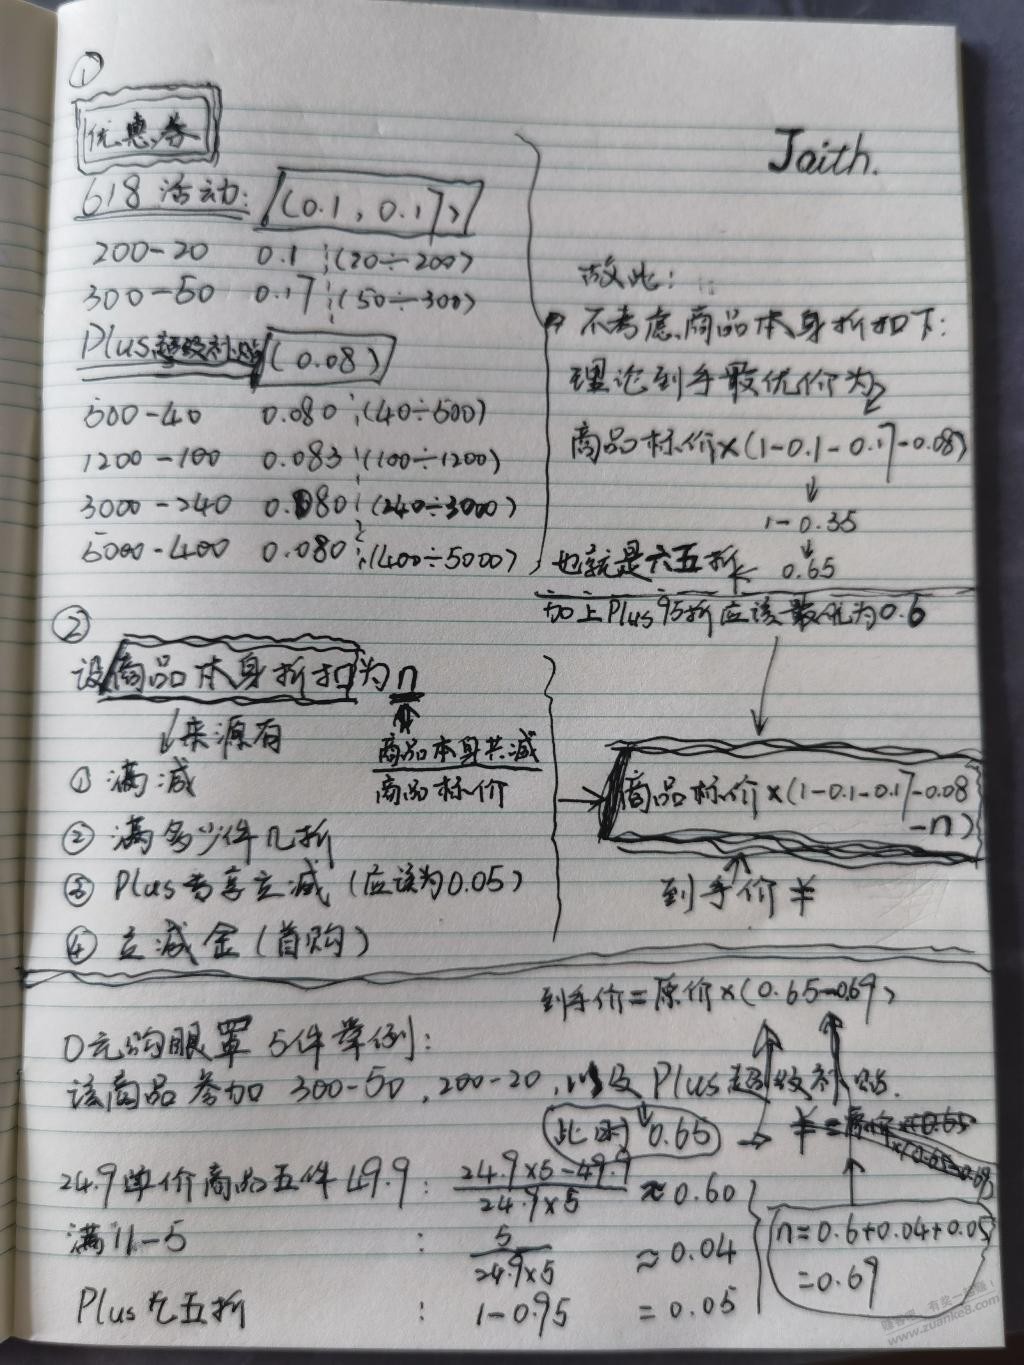 ①
优惠券
618 活动: (0.1, 0.17)
200-20 0.1 (20÷200)
300-50 0.17 (50÷300)
Plus超级补贴 (0.08)
500-40 0.080 (40÷500)
1200-100 0.083 (100÷1200)
3000-240 0.080 (240÷3000)
5000-400 0.080 (400÷5000)
Jaith.
故此:
不考虑商品本身折扣下:
理论到手最优价为
商品标价×(1-0.1-0.17-0.08)
↓
1-0.35
↓
也就是六五折 ← 0.65
加上Plus95折应该最优为0.6
②
设商品本身折扣为n
↓来源有
商品本身共减
商品标价
① 满减
② 满多少件几折
③ Plus专享立减 (应该为0.05)
④ 立减金 (首购)
商品标价×(1-0.1-0.17-0.08
-n)
到手价¥
到手价=原价×(0.65-0.69)
0元购眼罩 5件举例:
该商品参加 300-50, 200-20, 以及Plus超级补贴.
此时 0.65 → ¥=原价×(0.65
×(0.65-0.69)
24.9单价商品五件49.9 : 24.9×5-49.9
24.9×5
≈ 0.60
满11-5 : 5
24.9×5
≈ 0.04
Plus九五折 : 1-0.95 = 0.05
n=0.6+0.04+0.05
=0.69
www.zuanke8.com